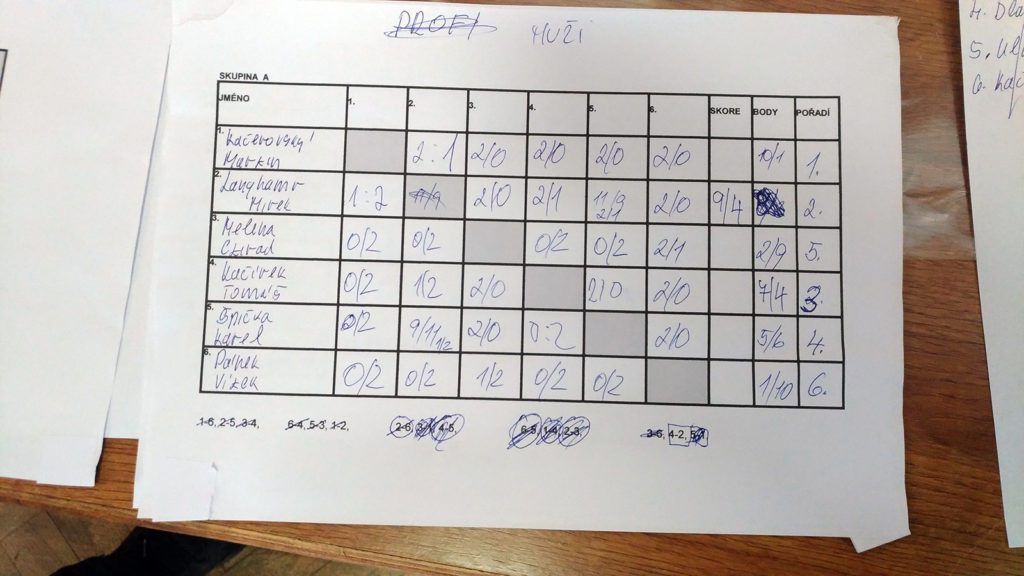 PROFI MUŽI
SKUPINA A
JMÉNO 1. 2. 3. 4. 5. 6. SKORE BODY POŘADÍ
1. Kačerovský
Martin 2:1 2/0 2/0 2/0 2/0 10/1 1.
2. Langhamr
Mirek 1:2 2/0 2/1 11/9 2/1 2/0 9/4 2.
3. Melena
Ctirad 0/2 0/2 0/2 0/2 2/1 2/9 5.
4. Kačírek
Tomáš 0/2 1/2 2/0 2/0 2/0 7/4 3.
5. Špička
Karel 0/2 9/11 1/2 2/0 0:2 2/0 5/6 4.
6. Pánek
0/2 0/2 1/2 0/2 0/2 1/10 6.
1-6, 2-5, 3-4, 6-4, 5-3, 1-2, 2-6, 3-1, 4-5, 6-5, 1-4, 2-3, 3-6, 4-2, 5-1
4.
5.
6.